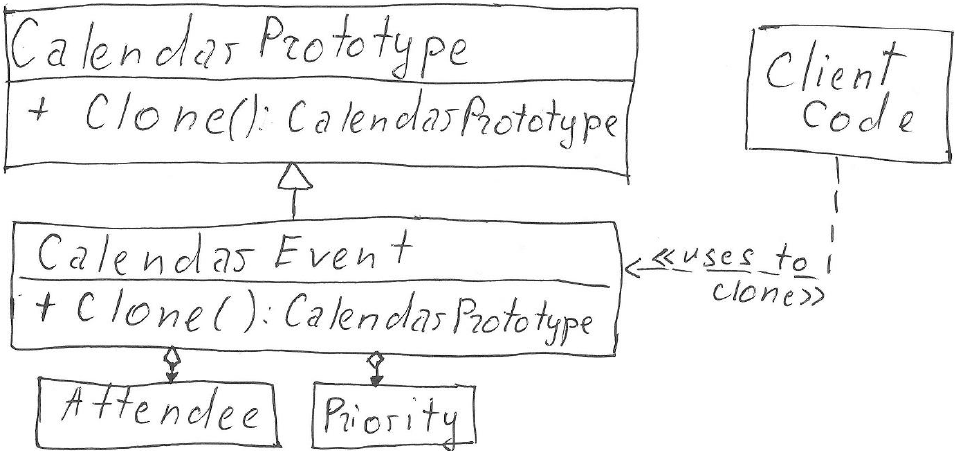 Calendar Prototype
+ Clone(): CalendarPrototype
Client
Code
Calendar Event
+ Clone(): CalendarPrototype
«uses to
clone»
Attendee
Priority